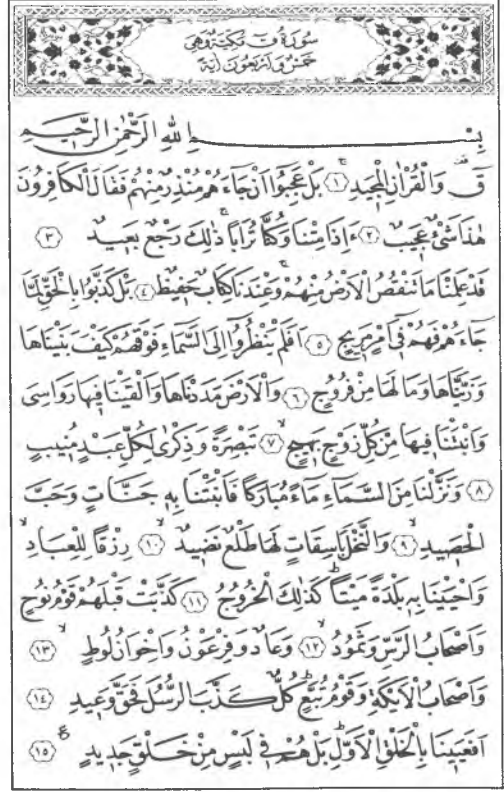 سُورَةُ قۤ مَكِّيَّةٌ وَهِيَ
خَمْسٌ وَاَرْبَعُونَ اٰيَةً
بِسْمِ اللّٰهِ الرَّحْمٰنِ الرَّحِيمِ
قۤ وَالْقُرْاٰنِ الْمَجِيدِ ﴿١﴾ بَلْ عَجِبُٓوا اَنْ جَٓاءَهُمْ مُنْذِرٌ مِنْهُمْ فَقَالَ الْكَافِرُونَ
هٰذَا شَيْءٌ عَجِيبٌ ﴿٢﴾ ءَاِذَا مِتْنَا وَكُنَّا تُرَابًا ذٰلِكَ رَجْعٌ بَعِيدٌ ﴿٣﴾
قَدْ عَلِمْنَا مَا تَنْقُصُ الْاَرْضُ مِنْهُمْ وَعِنْدَنَا كِتَابٌ حَفِيظٌ ﴿٤﴾ بَلْ كَذَّبُوا بِالْحَقِّ لَمَّا
جَٓاءَهُمْ فَهُمْ فِٓي اَمْرٍ مَرِيجٍ ﴿٥﴾ اَفَلَمْ يَنْظُرُٓوا اِلَى السَّمَٓاءِ فَوْقَهُمْ كَيْفَ بَنَيْنَاهَا
وَزَيَّنَّاهَا وَمَا لَهَا مِنْ فُرُوجٍ ﴿٦﴾ وَالْاَرْضَ مَدَدْنَاهَا وَاَلْقَيْنَا فِيهَا رَوَاسِيَ
وَاَنْبَتْنَا فِيهَا مِنْ كُلِّ زَوْجٍ بَهِيجٍ ﴿٧﴾ تَبْصِرَةً وَذِكْرٰى لِكُلِّ عَبْدٍ مُنِيبٍ
﴿٨﴾ وَنَزَّلْنَا مِنَ السَّمَٓاءِ مَٓاءً مُبَارَكًا فَاَنْبَتْنَا بِهِ جَنَّاتٍ وَحَبَّ
الْحَصِيدِ ﴿٩﴾ وَالنَّخْلَ بَاسِقَاتٍ لَهَا طَلْعٌ نَضِيدٌ ﴿١٠﴾ رِزْقًا لِلْعِبَادِ
وَاَحْيَيْنَا بِهِ بَلْدَةً مَيْتًا كَذٰلِكَ الْخُرُوجُ ﴿١١﴾ كَذَّبَتْ قَبْلَهُمْ قَوْمُ نُوحٍ
وَاَصْحَابُ الرَّسِّ وَثَمُودُ ﴿١٢﴾ وَعَادٌ وَفِرْعَوْنُ وَاِخْوَانُ لُوطٍ ﴿١٣﴾
وَاَصْحَابُ الْاَيْكَةِ وَقَوْمُ تُبَّعٍ كُلٌّ كَذَّبَ الرُّسُلَ فَحَقَّ وَعِيدِ ﴿١٤﴾
اَفَعَيِينَا بِالْخَلْقِ الْاَوَّلِ بَلْ هُمْ فِي لَبْسٍ مِنْ خَلْقٍ جَدِيدٍ ﴿١٥﴾